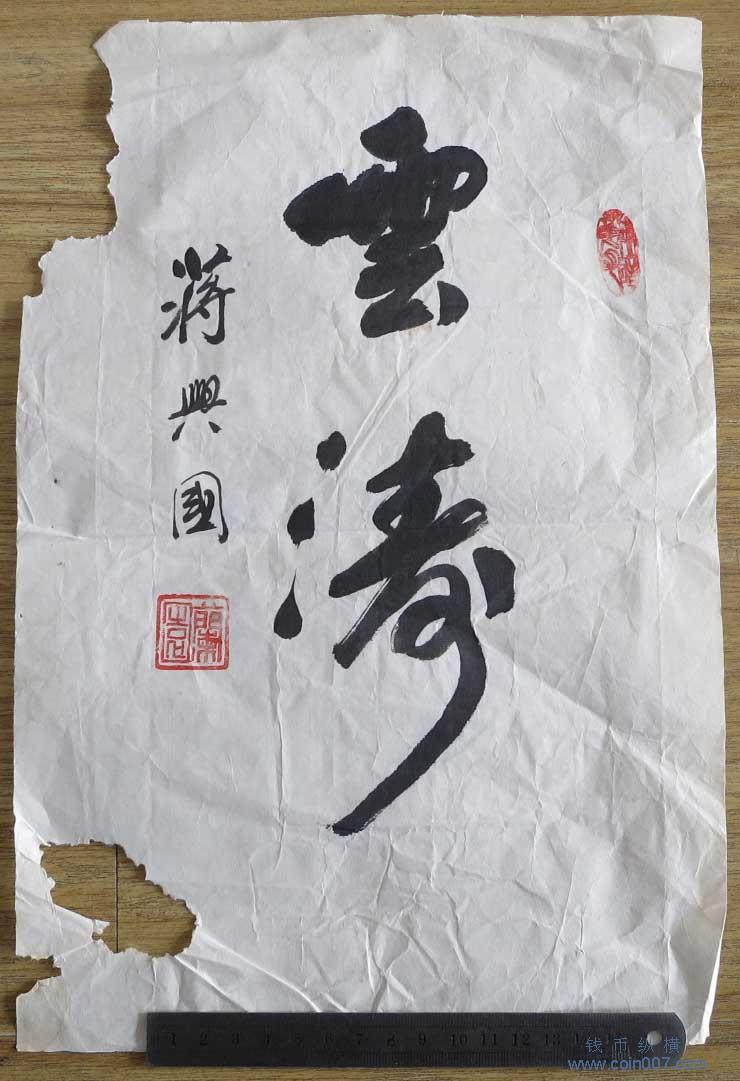 雲濤
蔣興國
1 2 3 4 5 6 7 8 9 10 11 12 13
钱币纵横
www.coin007.com